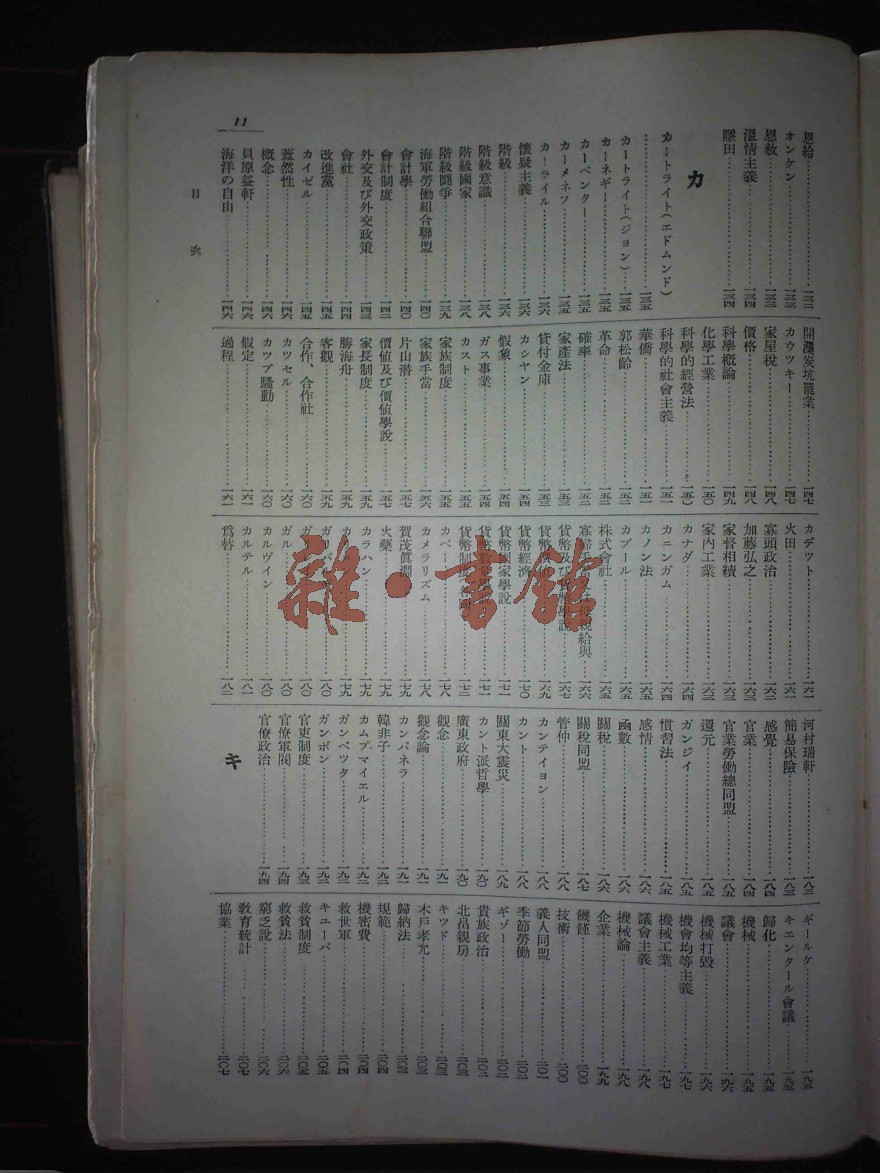 11
目次
恩給……一三二
オンケン……一三三
恩赦……一三三
溫情主義……一三四
隱田……一三四
カ
カートライト(エドムンド)
……一三五
カートライト(ジョン)……一三五
カーネギー……一三五
カーペンター……一三五
カーメネフ……一三五
カーライル……一三六
懷疑主義……一三六
階級……一三六
階級意識……一三八
階級國家……一三八
階級鬪爭……一三九
海軍勞働組合聯盟……一四〇
會計學……一四〇
會計制度……一四二
外交及び外交政策……一四三
會社……一四四
改進黨……一四四
カイゼル……一四五
蓋然性……一四六
概念……一四六
貝原益軒……一四六
海洋の自由……一四六
開灤炭坑罷業……一四七
カウツキー……一四七
家屋稅……一四八
價格……一四八
科學槪論……一四九
化學工業……一五〇
科學的經營法……一五〇
科學的社會主義……一五一
華僑……一五一
郭松齡……一五二
革命……一五二
確率……一五二
家產法……一五三
貸付金庫……一五三
カシヤン……一五四
假象……一五四
ガス事業……一五四
カスト……一五四
家族制度……一五五
家族手當……一五六
片山潛……一五七
價値及び價値學說……一五七
家長制度……一五九
勝海舟……一五九
客觀……一五九
合作、合作社……一六〇
カツセル……一六〇
カツプ騷動……一六〇
假定……一六一
過程……一六一
カデツト……一六一
火田……一六一
寡頭政治……一六二
加藤弘之……一六二
家督相續……一六三
家內工業……一六三
カナダ……一六四
カニンガム……一六四
カノン法……一六五
カブール……一六五
株式會社……一六五
給與……一六六
貨幣及び……一六七
貨幣……一六九
貨幣經濟……一七〇
貨幣國家學說……一七一
貨幣數量……一七一
貨幣制度……一七二
カベー……一七八
カメラリズム……一七八
賀茂眞淵……一七九
火藥……一七九
カラハン……一七九
カ……一七九
ガ……一八〇
ガ……一八〇
ガル……一八〇
カルヴイン……一八〇
カルテル……一八一
爲替……一八二
河村瑞軒……一八三
簡易保險……一八三
感覺……一八四
官業……一八四
官業勞働總同盟……一八四
還元……一八五
ガンジイ……一八五
慣習法……一八五
感情……一八六
函數……一八六
關稅……一八六
關稅同盟……一八七
管仲……一八八
カンテイヨン……一八八
カント……一八八
關東大震災……一八九
カント派哲學……一九〇
廣東政府……一九〇
觀念……一九一
觀念論……一九一
カンパネラ……一九一
韓非子……一九二
カムプマイエル……一九二
ガンベツタ……一九二
ガンボン……一九二
官吏制度……一九三
官僚軍閥……一九四
官僚政治……一九四
キ
ギールケ……一九五
キエンタール會議……一九五
歸化……一九五
機械……一九五
議會……一九六
機械打毀……一九六
機會均等主義……一九七
機械工業……一九七
議會主義……一九八
機械論……一九八
企業……一九九
饑饉……二〇〇
技術……二〇〇
義人同盟……二〇一
季節勞働……二〇二
ギゾー……二〇二
貴族政治……二〇二
北畠親房……二〇三
キツド……二〇三
木戶孝允……二〇三
歸納法……二〇三
規範……二〇四
機密費……二〇四
救世軍……二〇四
キユーバ……二〇五
救貧制度……二〇五
救貧法……二〇六
窮乏說……二〇六
敎育統計……二〇七
協業……二〇七
雜·書館